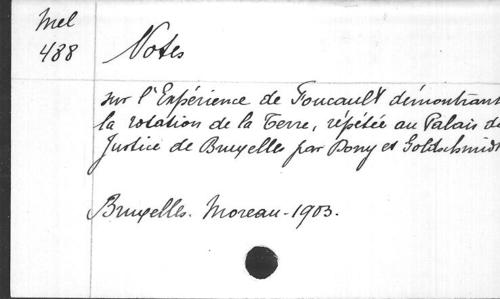 Mel
488
Notes
sur l'Expérience de Foucault démontrant
la rotation de la Terre, répétée au Palais de
Justice de Bruxelles par Dony et Goldschmidt
Bruxelles. Moreau - 1903.